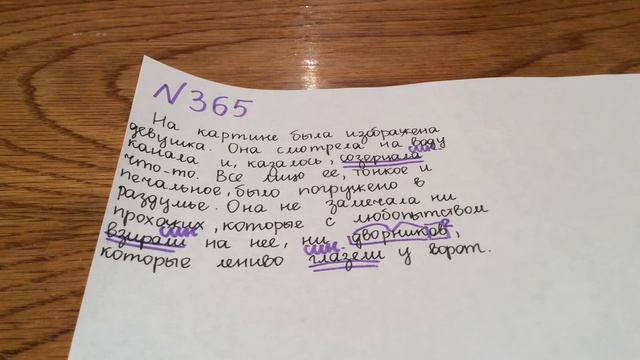 N 365
На картине была изображена
девушка. Она смотрела на воду
канала и, казалось, созерцала
что-то. Все лицо ее, тонкое и
печальное, было погружено в
раздумье. Она не замечала ни
прохожих, которые с любопытством
взирали на нее, ни дворников,
которые лениво глазели у ворот.
син.
син.
син.